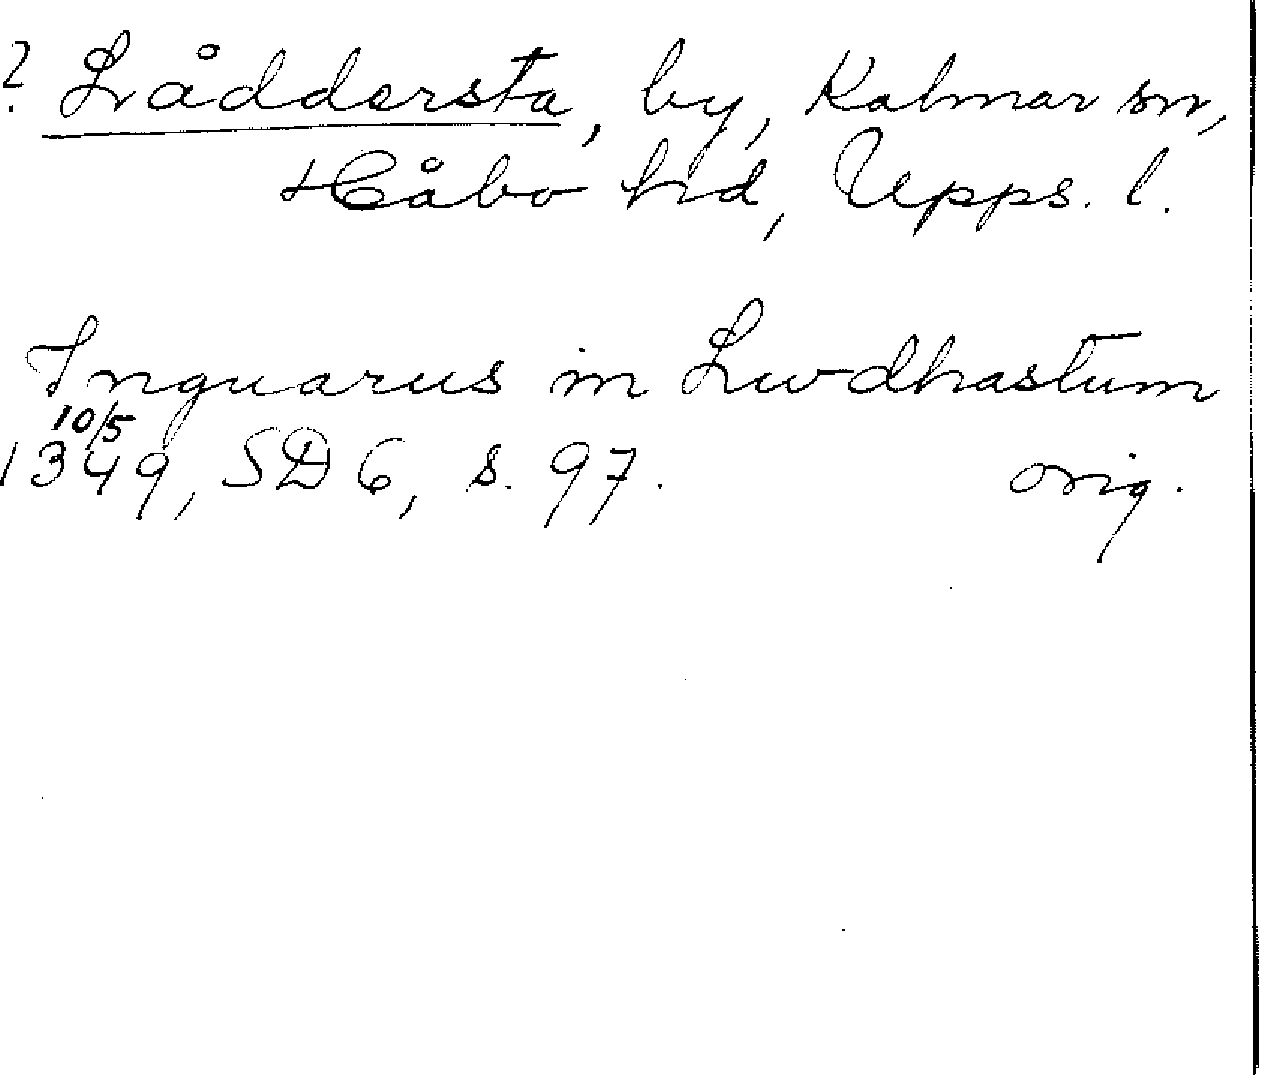 ? Låddersta, by, Kalmar sn,
Håbo hd, Upps. l.
Inguarus in Lwdhastum
10/5
1349, SD 6, s. 97. orig.